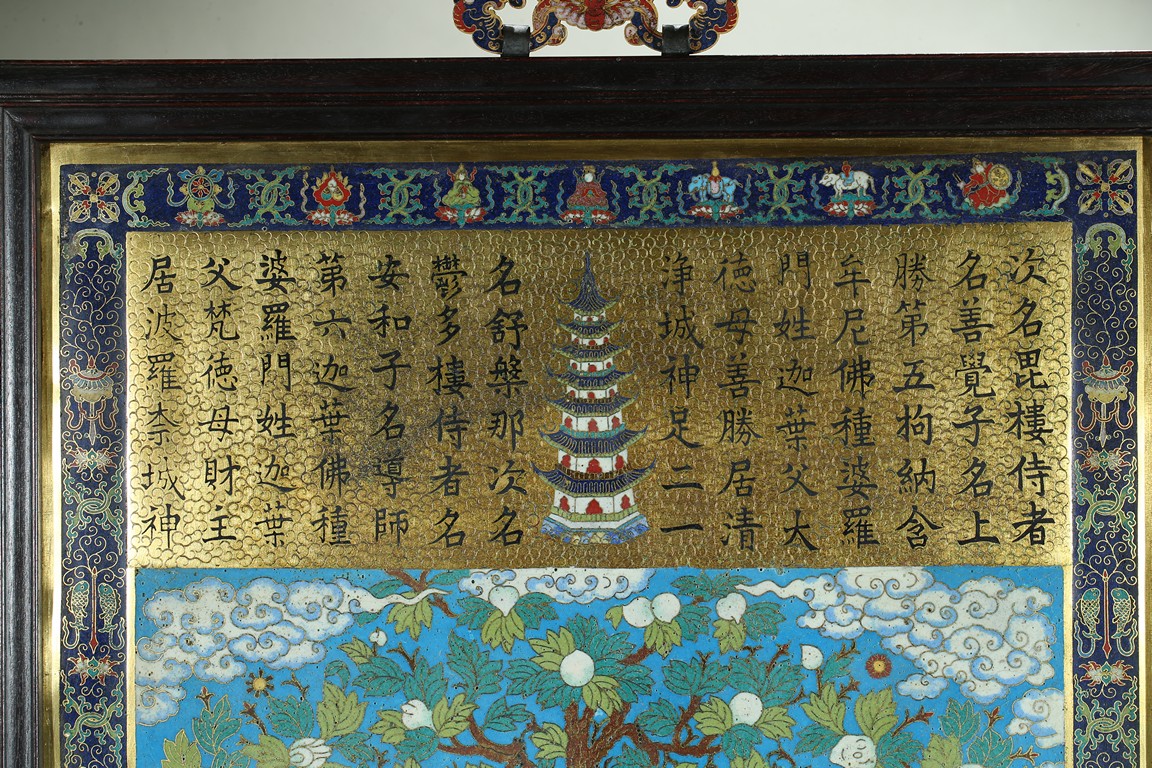 次名毘樓侍者
名善覺子名上
勝第五拘納含
牟尼佛種婆羅
門姓迦葉父大
德母善勝居清
淨城神足二一
名舒槃那次名
鬱多樓侍者名
安和子名導師
第六迦葉佛種
婆羅門姓迦葉
父梵德母財主
居波羅柰城神